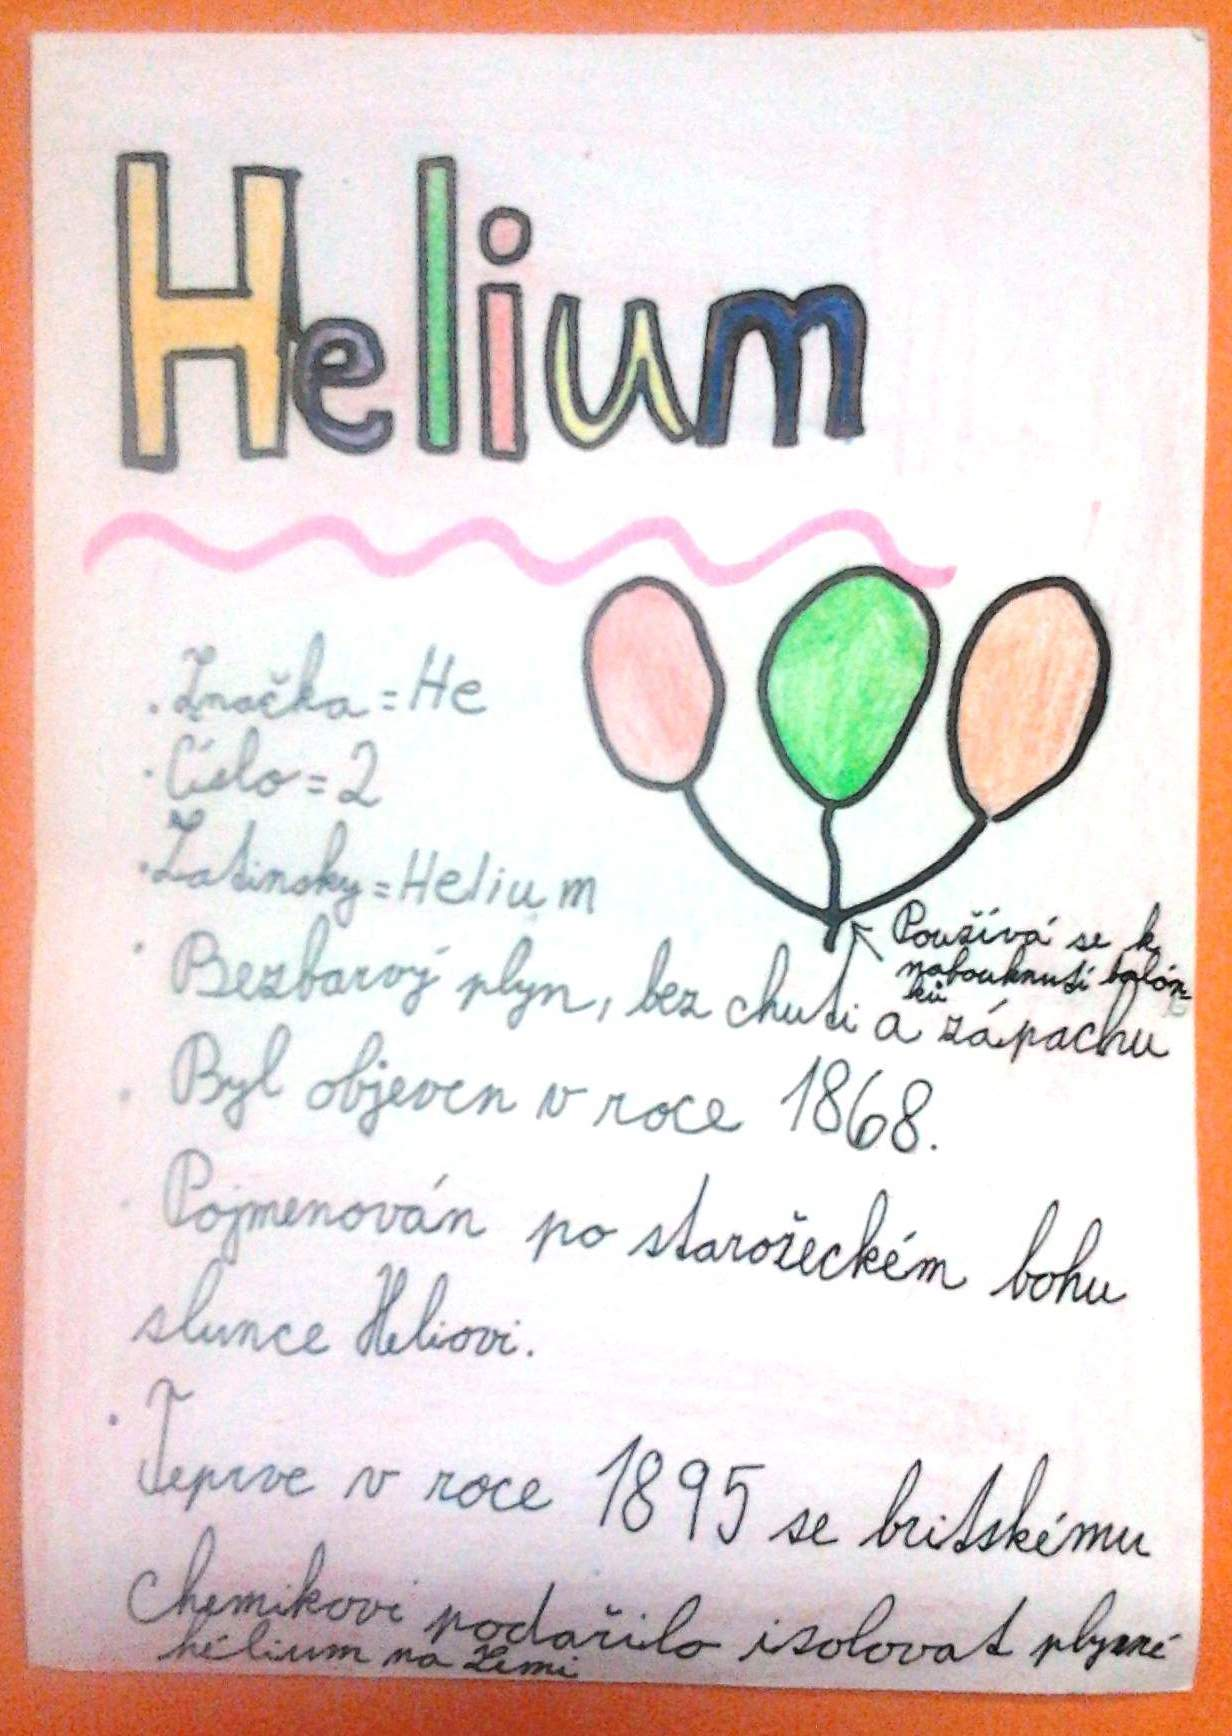 Helium
· Značka = He
· Číslo = 2
· Latinsky = Helium
Používá se k
nafouknutí balón-
ků
· Bezbarvý plyn, bez chuti a zápachu
· Byl objeven v roce 1868.
· Pojmenován po starořeckém bohu
slunce Héliovi.
· Teprve v roce 1895 se britskému
chemikovi podařilo izolovat plynné
hélium na Zemi